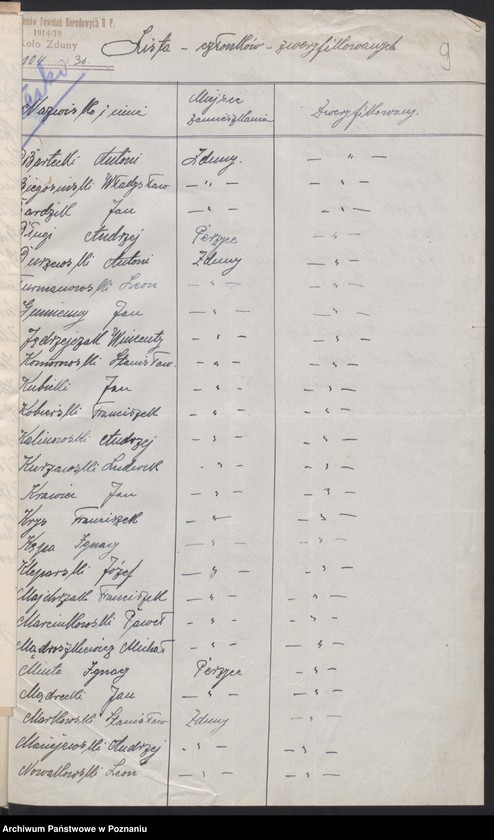 Powstań Narodowych R. P.
1914/19
Koło Zduny
Lista - członków - zweryfikowanych
9
104 30.
Nazwisko i imię Miejsce zamieszkania Zweryfikowany.
Bartecki Antoni Zduny. — " —
Władysław — " — — " —
Jan — " — — " —
Długi Andrzej Perzyce — " —
Durzewski Antoni Zduny — " —
Furmanowski Leon — " — — " —
Jan — " — — " —
Jędrzejczak Wincenty — " — — " —
Komorowski Stanisław — " — — " —
Kubicki Jan — " — — " —
Kobierski Franciszek — " — — " —
Kalinowski Andrzej — " — — " —
Kurzawski Ludwik — " — — " —
Krawiec Jan — " — — " —
Krys Franciszek — " — — " —
Kępa Ignacy — " — — " —
Kleparski Józef — " — — " —
Majchrzak Franciszek — " — — " —
Marcinkowski Paweł — " — — " —
Mądroszkiewicz Michał — " — — " —
Minta Ignacy Perzyce — " —
Mądrecki Jan — " — — " —
Markowski Stanisław Zduny — " —
Maniejewski Andrzej — " — — " —
Nowakowski Leon — " — — " —
Archiwum Państwowe w Poznaniu